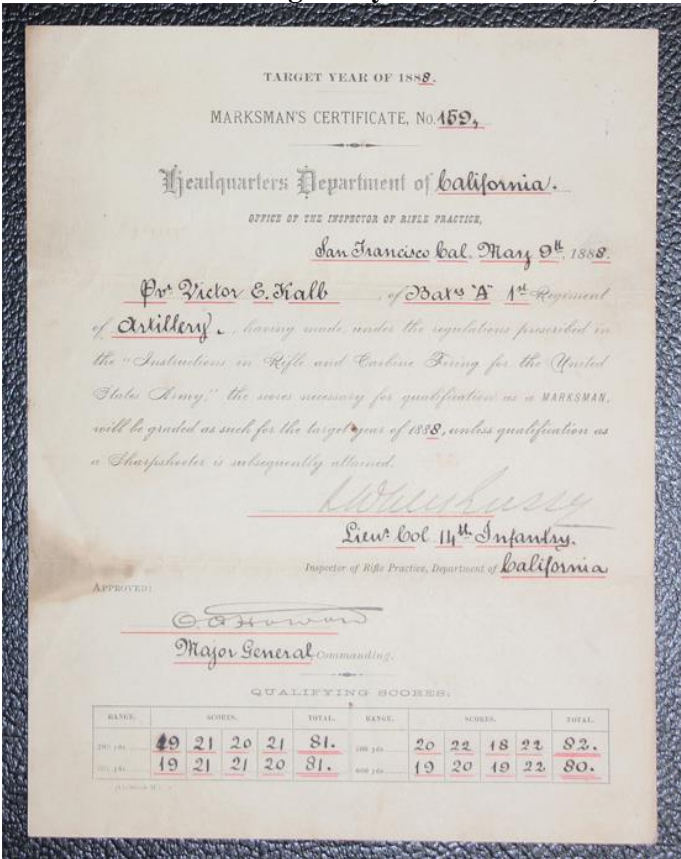 TARGET YEAR OF 1888.
MARKSMAN'S CERTIFICATE, No. 159,
Headquarters Department of California.
OFFICE OF THE INSPECTOR OF RIFLE PRACTICE,
San Francisco Cal. May 9th, 1888.
Pvt Victor E. Kalb, of Baty "A" 1st Regiment
of Artillery., having made, under the regulations prescribed in
the "Instructions in Rifle and Carbine Firing for the United
States Army," the scores necessary for qualification as a MARKSMAN,
will be graded as such for the target year of 1888, unless qualification as
a Sharpshooter is subsequently attained.
Lieut Col 14th Infantry.
Inspector of Rifle Practice, Department of California
APPROVED:
O. O. Howard
Major General, Commanding.
QUALIFYING SCORES:
RANGE. SCORES. TOTAL. RANGE. SCORES. TOTAL.
200 yds. 19 21 20 21 81. yds. 20 22 18 22 82.
yds. 19 21 21 20 81. 600 yds. 19 20 19 22 80.